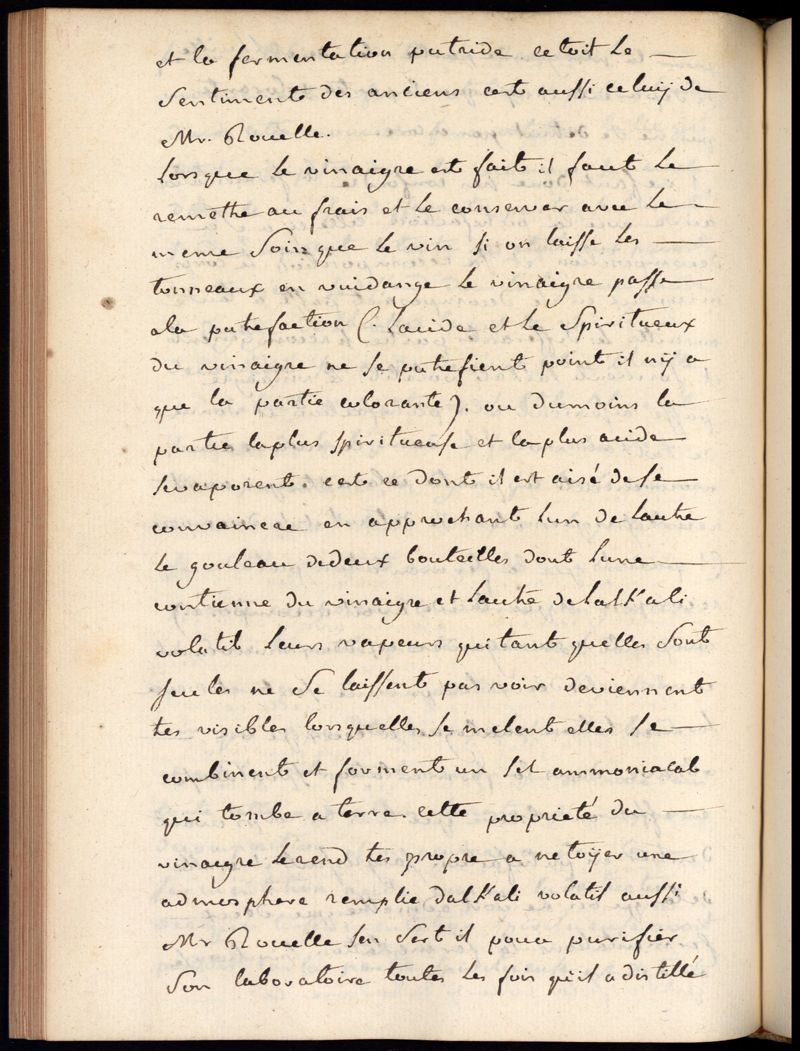 et la fermentation putride cetoit le —
Sentiments des anciens cest aussi celuij de
Mr. Rouelle.
Lorsque le vinaigre est fait il faut le
remettre au frais et le conserver avec le —
meme Soin que le vin si on laisse les —
tonneaux en vuidange le vinaigre passe
ala putrefaction (. Lacide et le Spiritueux
du vinaigre ne se putrefient point il nij a
que la partie colorante). ou dumoins la
partie laplus spiritueuse et laplus acide
sevaporent. cest ce dont il est aisé de se —
convaincre en approchant lun de lautre
le gouleau dedeux bouteilles dont lune —
contienne du vinaigre et lautre delalKali
volatil leurs vapeurs qui tant quelles sont
seules ne se laissent pas voir deviennent
tres visibles lorsquelles se melent elles se —
combinent et forment un sel ammoniacal
qui tombe a terre. cette proprieté du —
vinaigre lerend tres propre a netoÿer une
admosphere remplie dalKali volatil aussi
Mr Rouelle sen sert il pour purifier
son laboratoire toutes les fois qu'il a distillé